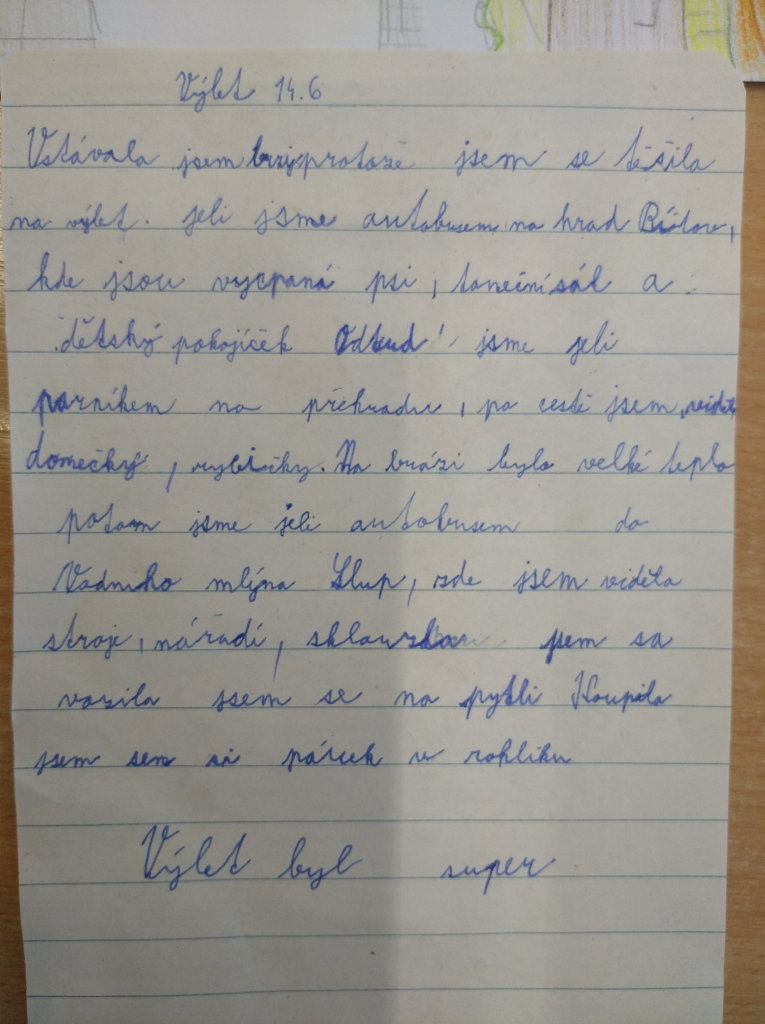 Výlet 14.6
Vstávala jsem brzy protože jsem se těšila
na výlet. jeli jsme autobusem na hrad Bítov,
kde jsou vycpaná psi, taneční sál a
dětský pokojíček Odtud jsme jeli
parníkem na přehradu, po cestě jsem viděla
domečký, rybičky. Na hrázi bylo velké teplo
potom jsme jeli autobusem do
Vodního mlýna Slup, zde jsem viděla
stroje, nářadí, jsem sa
vozila jsem se na pytli Koupila
jsem sem si párek v rohliku
Výlet byl super